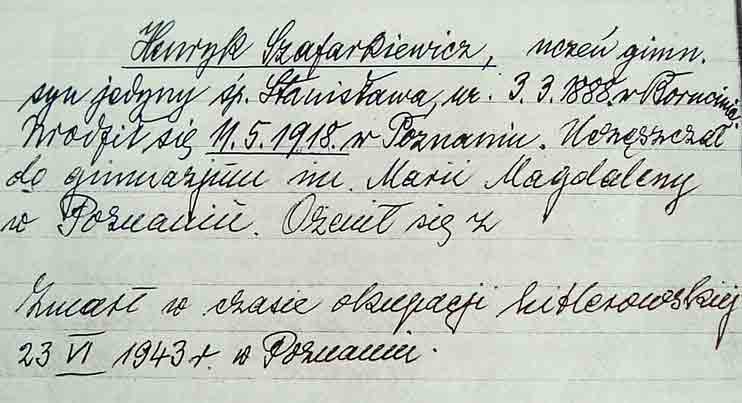 Henryk Szafarkiewicz, uczeń gimn.
syn jedyny śp. Stanisława, ur. 3.3.1888. w Borucinie.
Urodził się 11.5.1918. w Poznaniu. Uczęszczał
do gimnazjum im. Marii Magdaleny
w Poznaniu. Ożenił się z
Zmarł w czasie okupacji hitlerowskiej
23 VI 1943 r. w Poznaniu.